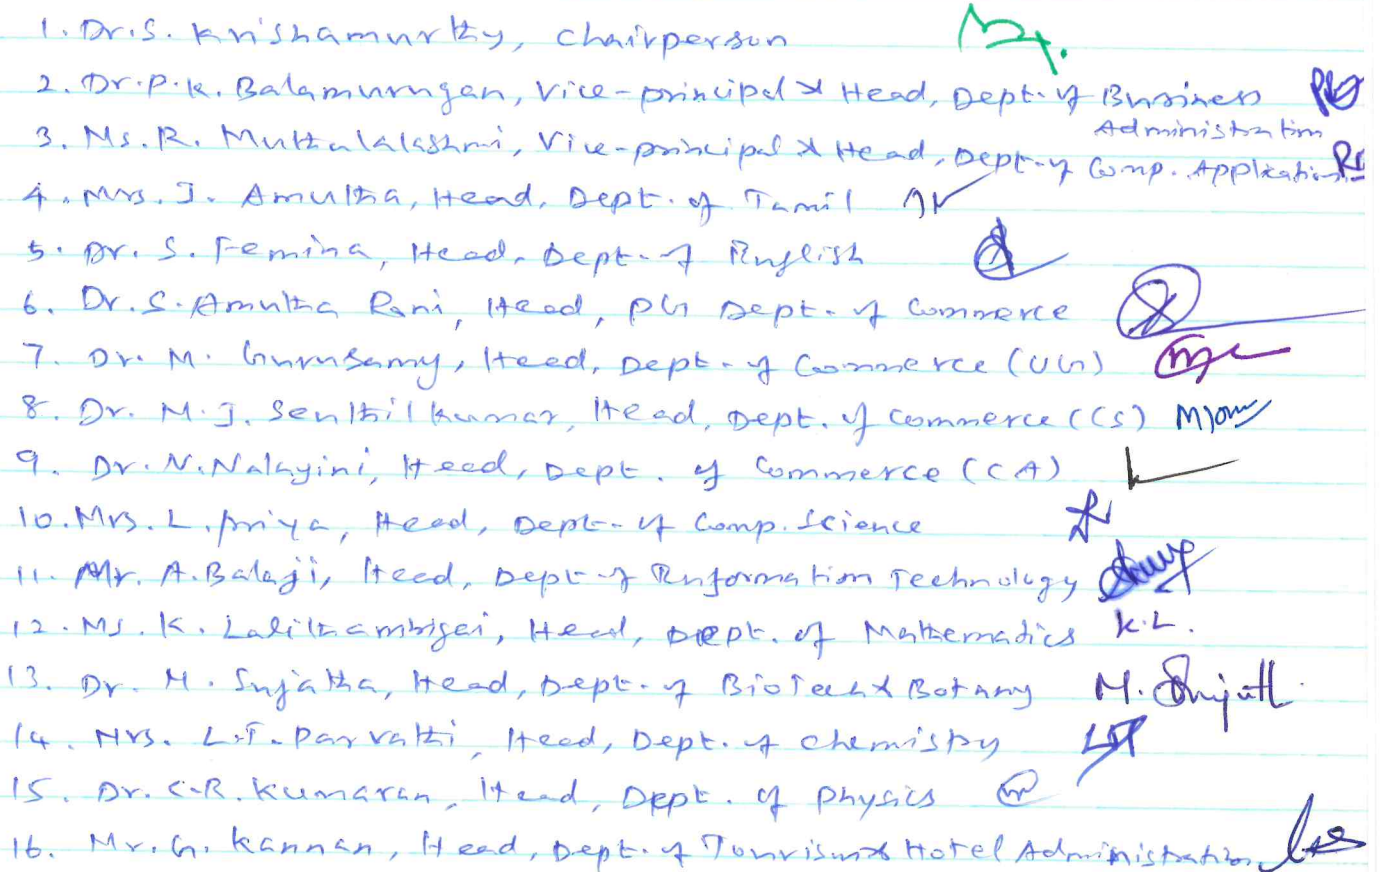 1. Dr.S. Krishamurthy, chairperson
2. Dr.P.K. Balamurugan, Vice-principal & Head, Dept. of Business
Administration
3. Ms. R. Muthulalashmi, Vice-principal & Head, Dept. of Comp. Application
4. Mrs. J. Amutha, Head, Dept. of Tamil
5. Dr. S. Femina, Head, Dept. of English
6. Dr. S. Amutha Rani, Head, PG Dept. of Commerce
7. Dr. M. Gurusamy, Head, Dept. of Commerce (UG)
8. Dr. M.J. Senthilkumar, Head, Dept. of Commerce (CS)
9. Dr. N. Nalayini, Head, Dept. of Commerce (CA)
10. Mrs. L. priya, Head, Dept. of Comp. Science
11. Mr. A. Balaji, Head, Dept. of Information Technology
12. Ms. K. Lalithambigai, Head, Dept. of Mathematics K.L.
13. Dr. M. Sujatha, Head, Dept. of BioTech & Botany M.
14. Mrs. L.T. Parvathi, Head, Dept. of Chemistry
15. Dr. C.R. Kumaran, Head, Dept. of Physics
16. Mr. G. Kannan, Head, Dept. of Tourism & Hotel Administration